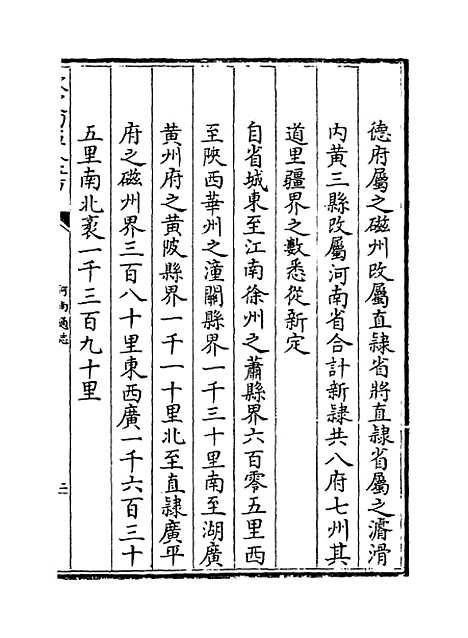 德府屬之磁州改屬直隷省將直隷省屬之濬滑
内黃三縣改屬河南省合計新隷共八府七州其
道里疆界之數悉從新定
自省城東至江南徐州之蕭縣界六百零五里西
至陜西華州之潼關縣界一千三十里南至湖廣
黃州府之黃陂縣界一千一十里北至直隷廣平
府之磁州界三百八十里東西廣一千六百三十
五里南北袤一千三百九十里
河南通志
二